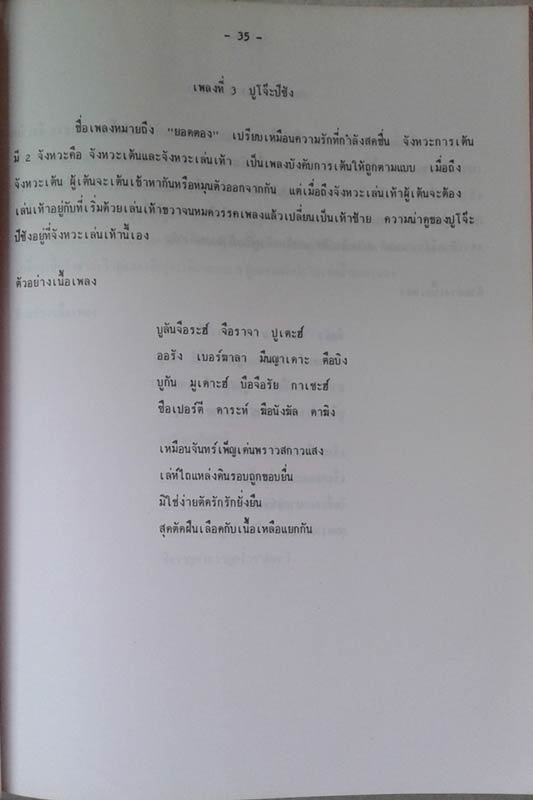 - 35 -
เพลงที่ 3 ปูโจ๊ะปีซัง
ชื่อเพลงหมายถึง "ยอดตอง" เปรียบเหมือนความรักที่กำลังสดชื่น จังหวะการเต้น
มี 2 จังหวะคือ จังหวะเต้นและจังหวะเล่นเท้า เป็นเพลงบังคับการเต้นให้ถูกตามแบบ เมื่อถึง
จังหวะเต้น ผู้เต้นจะเต้นเข้าหากันหรือหมุนตัวออกจากกัน แต่เมื่อถึงจังหวะเล่นเท้าผู้เต้นจะต้อง
เล่นเท้าอยู่กับที่เริ่มด้วยเล่นเท้าขวาจนหมดวรรคเพลงแล้วเปลี่ยนเป็นเท้าซ้าย ความน่าดูของปูโจ๊ะ
ปีซังอยู่ที่จังหวะเล่นเท้านี้เอง
ตัวอย่างเนื้อเพลง
บูลันจือระฮ์ จือราจา ปูเตะฮ์
ออรัง เบอร์ฆาลา มึนญาเดาะ ตือบิง
บูกัน มูเดาะฮ์ บือจือรัย กาเซะฮ์
ซือเปอร์ตี ดาระห์ มือนังฆัล ดาฆิง
เหมือนจันทร์เพ็ญเด่นพราวสกาวแสง
เล่ห์ไถแหล่งดินรอบถูกขอบยื่น
มิใช่ง่ายตัดรักรักยั่งยืน
สุดตัดฝืนเลือดกับเนื้อเหลือแยกกัน